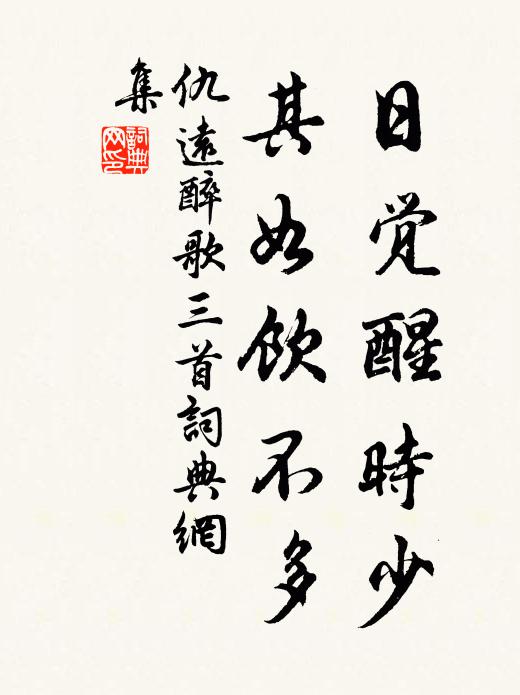 日觉醒時少
其如飲不多
仇遠醉歌三首詞典網
集
詞典网印